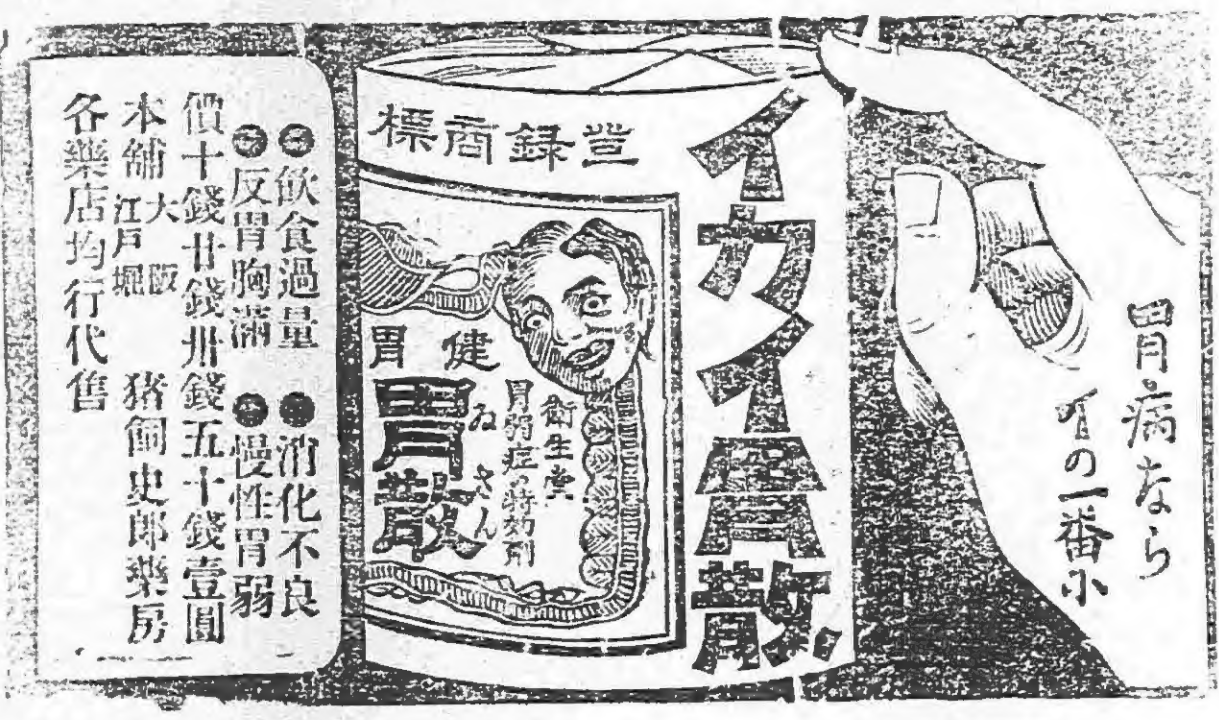 胃病なら
の一番
イカイ胃散
登録商標
健胃
衛生堂
胃弱症の特効剤
ゐさん
胃散
飲食過量 消化不良
反胃胸滿 慢性胃弱
價十錢廿錢卅錢五十錢壹圓
本舖 大阪江戸堀 猪飼史郎藥房
各藥店均行代售